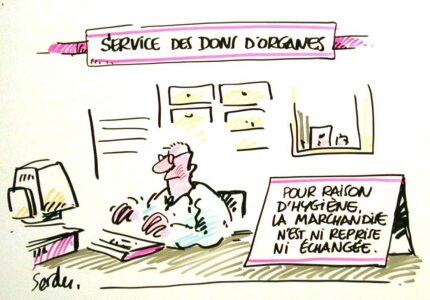 SERVICE DES DONS D'ORGANES
POUR RAISON
D'HYGIÈNE,
LA MARCHANDISE
N'EST NI REPRISE
NI ÉCHANGÉE.
Serdu.